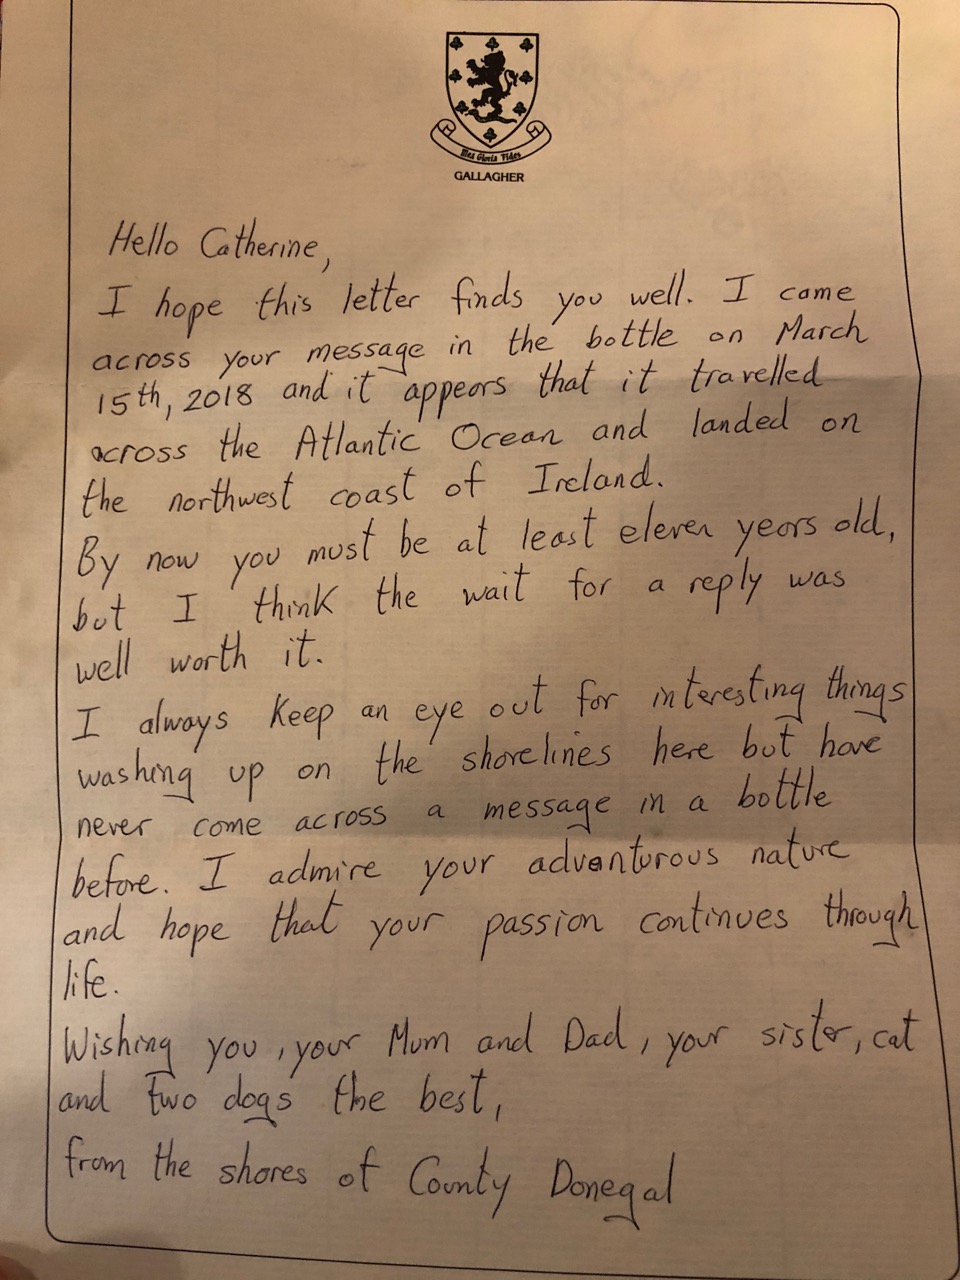 Mea Gloria Fides
GALLAGHER
Hello Catherine,
I hope this letter finds you well. I came
across your message in the bottle on March
15th, 2018 and it appears that it travelled
across the Atlantic Ocean and landed on
the northwest coast of Ireland.
By now you must be at least eleven years old,
but I think the wait for a reply was
well worth it.
I always keep an eye out for interesting things
washing up on the shorelines here but have
never come across a message in a bottle
before. I admire your adventurous nature
and hope that your passion continues through
life.
Wishing you, your Mum and Dad, your sister, cat
and two dogs the best,
from the shores of County Donegal